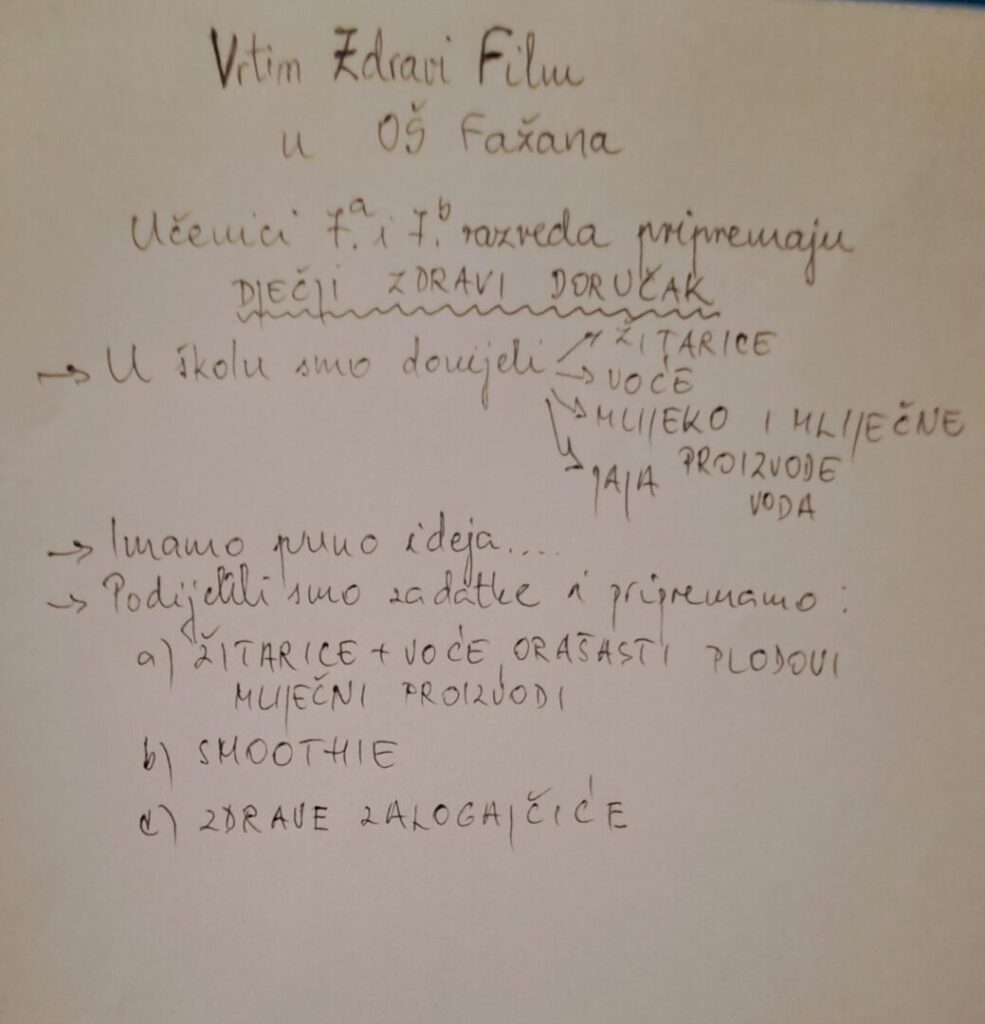 Vrtim Zdravi Film
u OŠ Fažana
Učenici 7.a i 7.b razreda pripremaju
DJEČJI ZDRAVI DORUČAK
→ U školu smo donijeli → ŽITARICE
→ VOĆE
→ MLIJEKO I MLIJEČNE
PROIZVODE
→ JAJA
VODA
→ Imamo puno ideja....
→ Podijelili smo zadatke i pripremamo:
a) ŽITARICE + VOĆE, ORAŠASTI PLODOVI
MLIJEČNI PROIZVODI
b) SMOOTHIE
c) ZDRAVE ZALOGAJČIĆE